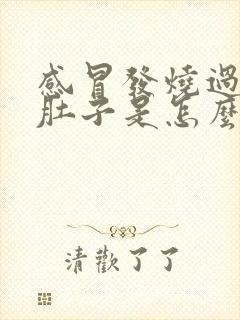 感冒發燒過
肚子是怎麼
清歡了了